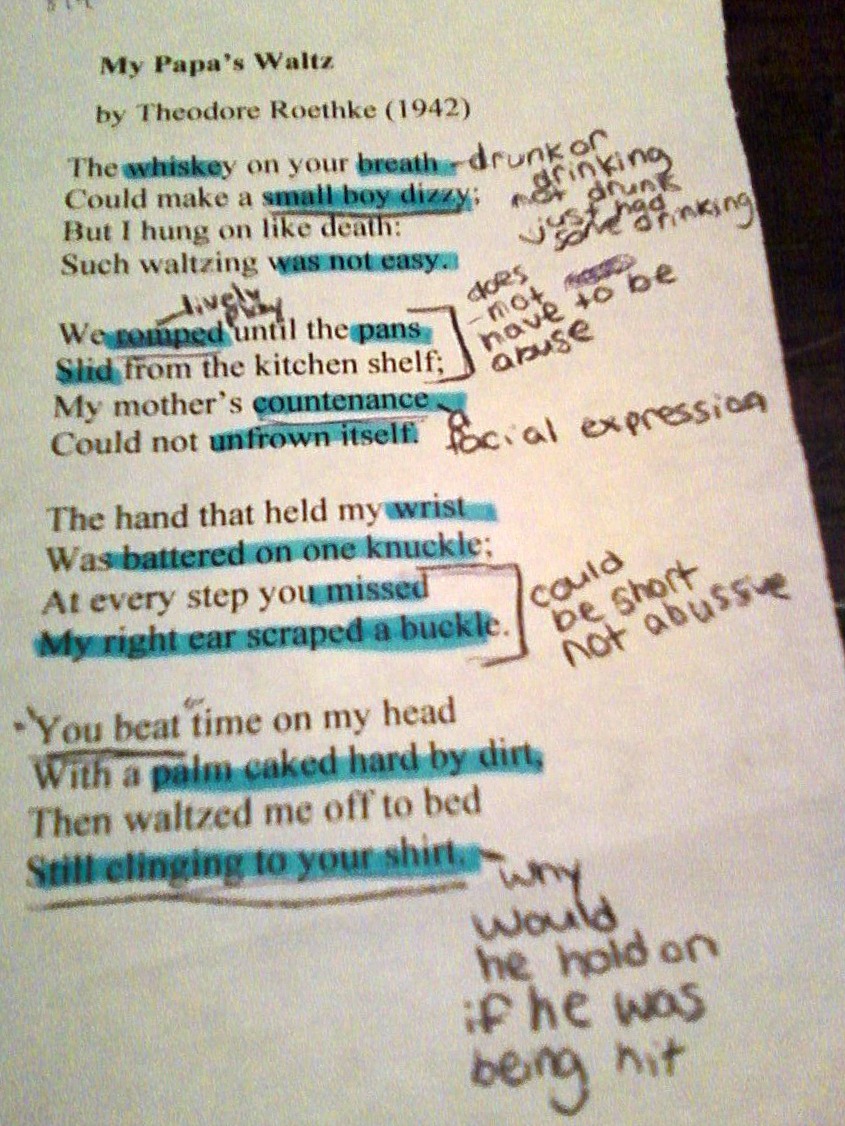 My Papa's Waltz
by Theodore Roethke (1942)
The whiskey on your breath - drunk or
drinking
Could make a small boy dizzy;
not drunk
just had
some drinking
But I hung on like death:
Such waltzing was not easy.
lively
play
We romped until the pans
Slid from the kitchen shelf;
does
-not
have to be
abuse
My mother's countenance
Could not unfrown itself.
facial expression
The hand that held my wrist
Was battered on one knuckle;
At every step you missed
My right ear scraped a buckle.
could
be short
not abussive
You beat time on my head
With a palm caked hard by dirt,
Then waltzed me off to bed
Still clinging to your shirt.
- why
would
he hold on
if he was
being hit